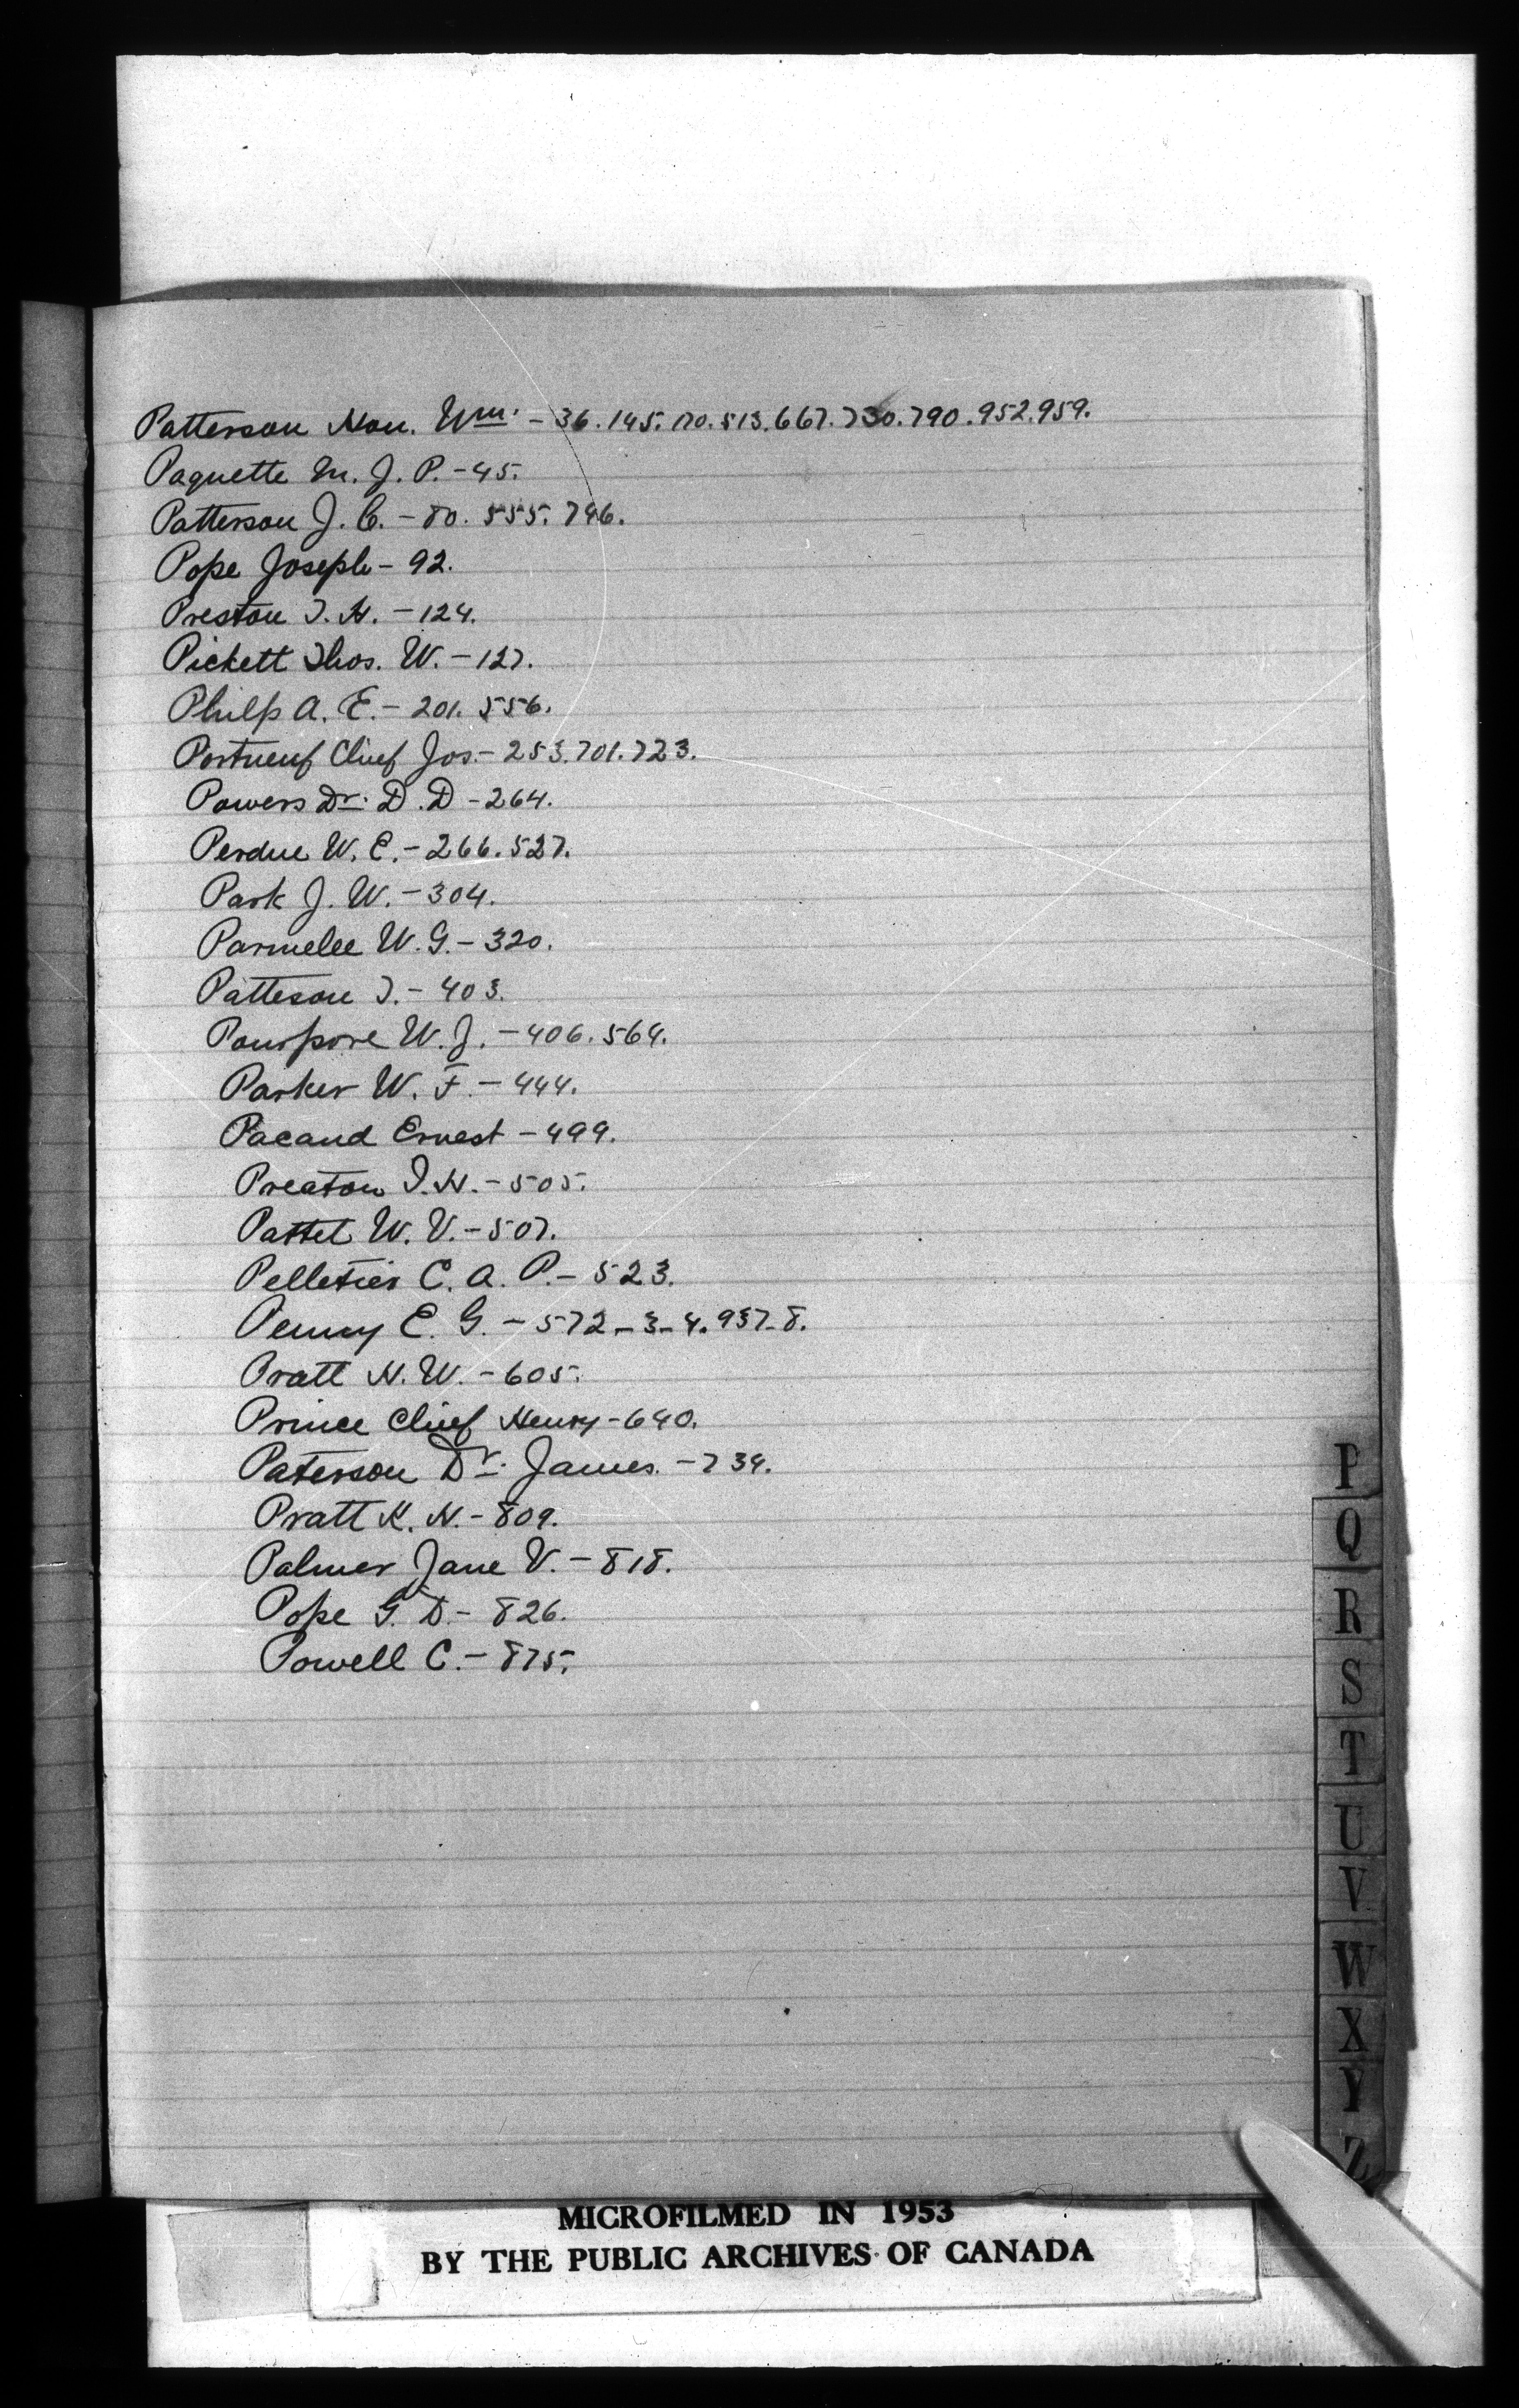 Patterson Hon. Wm. - 36. 145. 170. 513. 667. 730. 790. 952. 959.
Paquette M. J. P. - 45.
Patterson J. C. - 80. 555. 746.
Pope Joseph - 92.
Preston T. H. - 124.
Pickett Thos. W. - 127.
Philp A. E. - 201. 556.
Portneuf Chief Jos. - 253. 701. 723.
Powers Dr. D. D - 264.
Perdue W. E. - 266. 527.
Park J. W. - 304.
Parmelee W. G. - 320.
Patteson T. - 403.
Poupore W. J. - 406. 564.
Parker W. F. - 444.
Pacaud Ernest - 499.
Preaton T. H. - 505.
Pattet W. V. - 507.
Pelletier C. A. P. - 523.
Penny E. G. - 572-3-4. 937-8.
Pratt H. W. - 605.
Prince Chief Henry - 640.
Paterson Dr. James. - 734.
Pratt K. H. - 809.
Palmer Jane V. - 818.
Pope G. D. - 826.
Powell C. - 875.
P
Q
R
S
T
U
V
W
X
Y
Z
MICROFILMED IN 1953
BY THE PUBLIC ARCHIVES OF CANADA